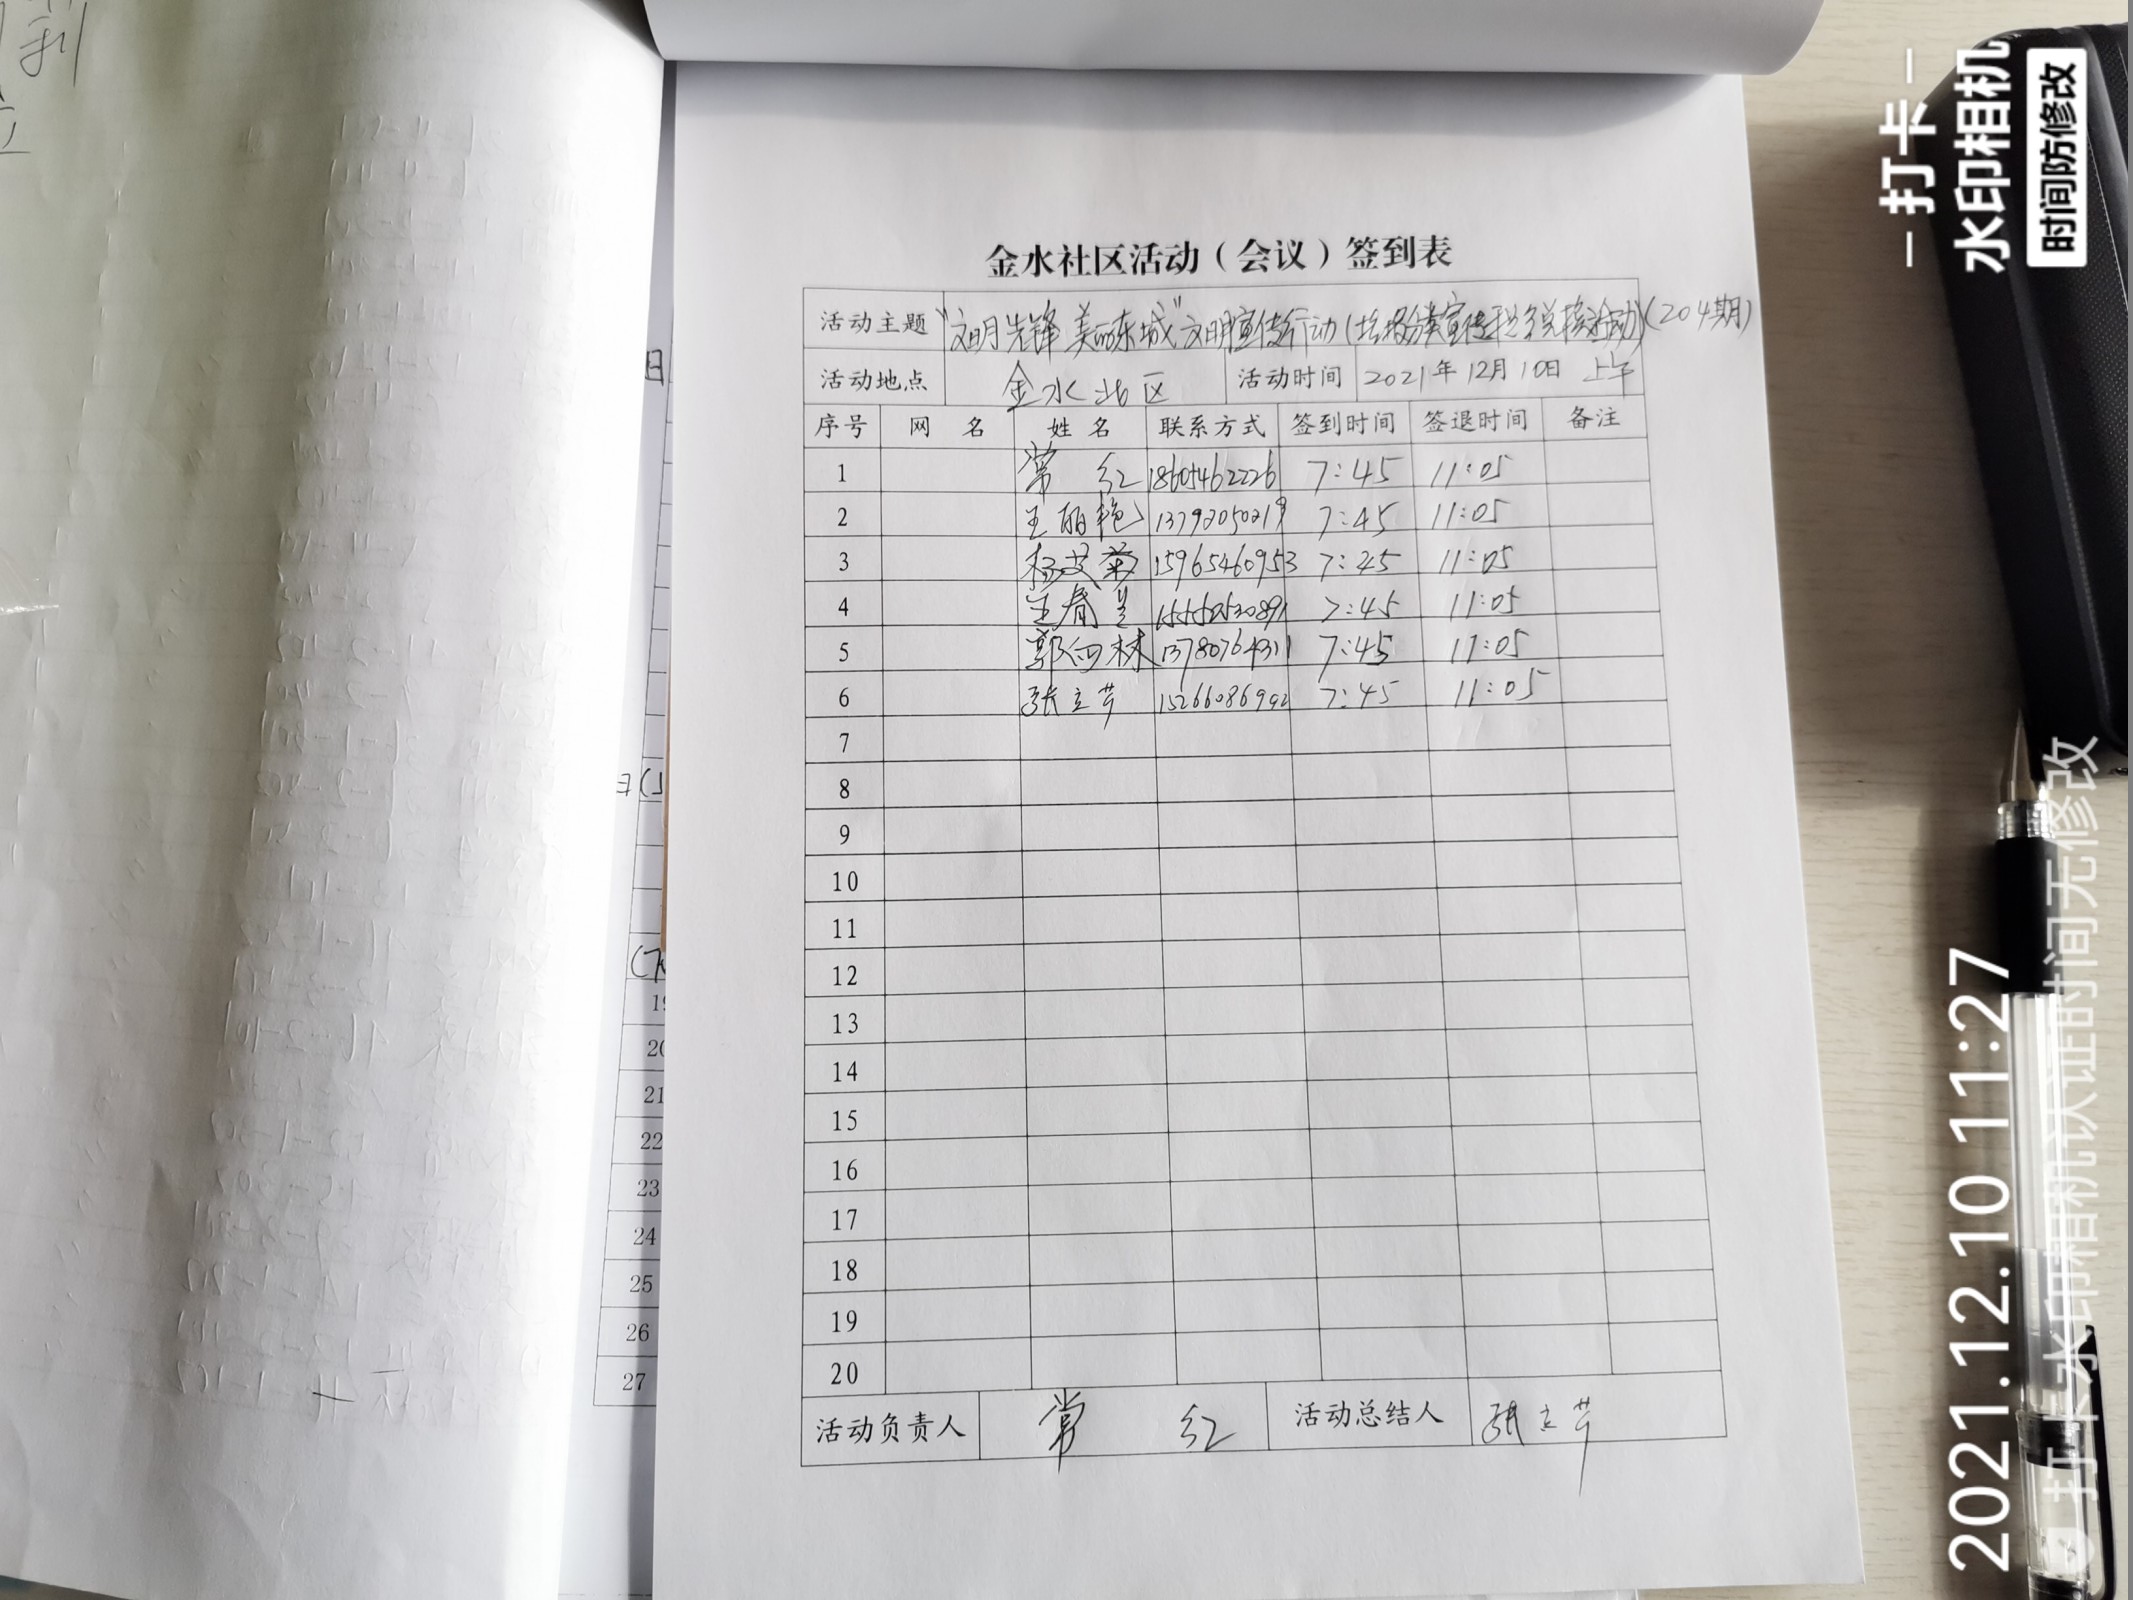 金水社区活动（会议）签到表
活动主题 “文明先锋 美丽东城”文明宣传行动(垃圾分类宣传 积分兑换活动)(204期)
活动地点 金水北区 活动时间 2021年12月10日 上午
序号 网 名 姓 名 联系方式 签到时间 签退时间 备注
1 常 红 18605462226 7:45 11:05
2 王丽艳 13792050219 7:45 11:05
3 杨艾菊 15965460953 7:45 11:05
4 王春兰 15550530891 7:45 11:05
5 郭向林 13780764311 7:45 11:05
6 张立芹 15266086992 7:45 11:05
7
8
9
10
11
12
13
14
15
16
17
18
19
20
活动负责人 常 红 活动总结人 张立芹
19
20
21
22
23
24
25
26
27
打卡
水印相机
时间防修改
2021.12.10 11:27
打卡水印相机认证时间无修改